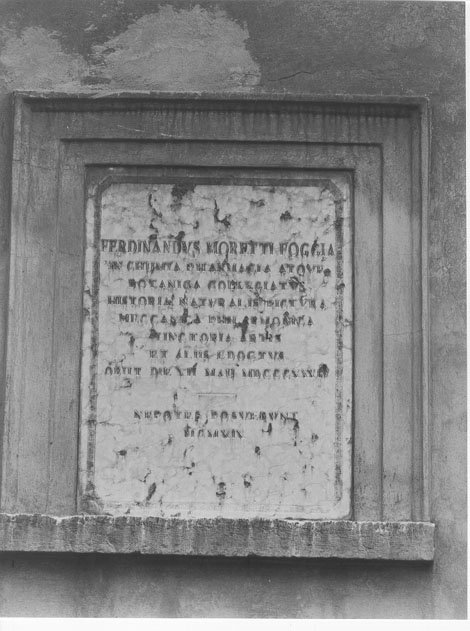 FERDINANDVS MORETTI FOGGIA
IN CHIMIA PHARMACIA ATQVE
BOTANICA COLLEGIATVS
HISTORIA NATURALI PICTVRA
MECCANICA PHILARMONICA
TINCTORIA ARTE
ET ALIIS
OBIIT DIE MAII
NEPOTES POSVERUNT